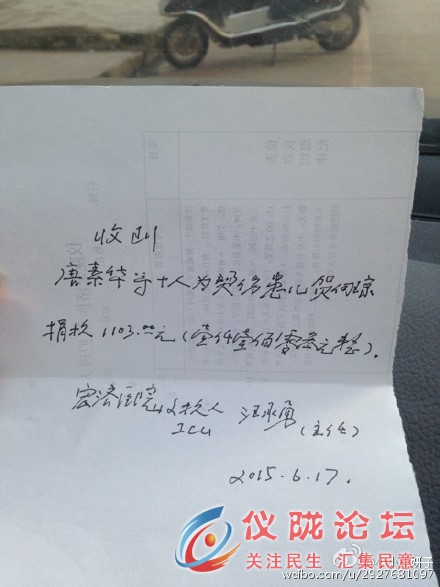 收到
唐素华等十人为烫伤患儿贺
捐款1103.00元(壹仟壹佰零叁元整).
宏济医院收款人 汪永勇
ICU (主任)
2015.6.17.
仪陇论坛
关注民生 汇集民意
weibo.com/u/2927631097